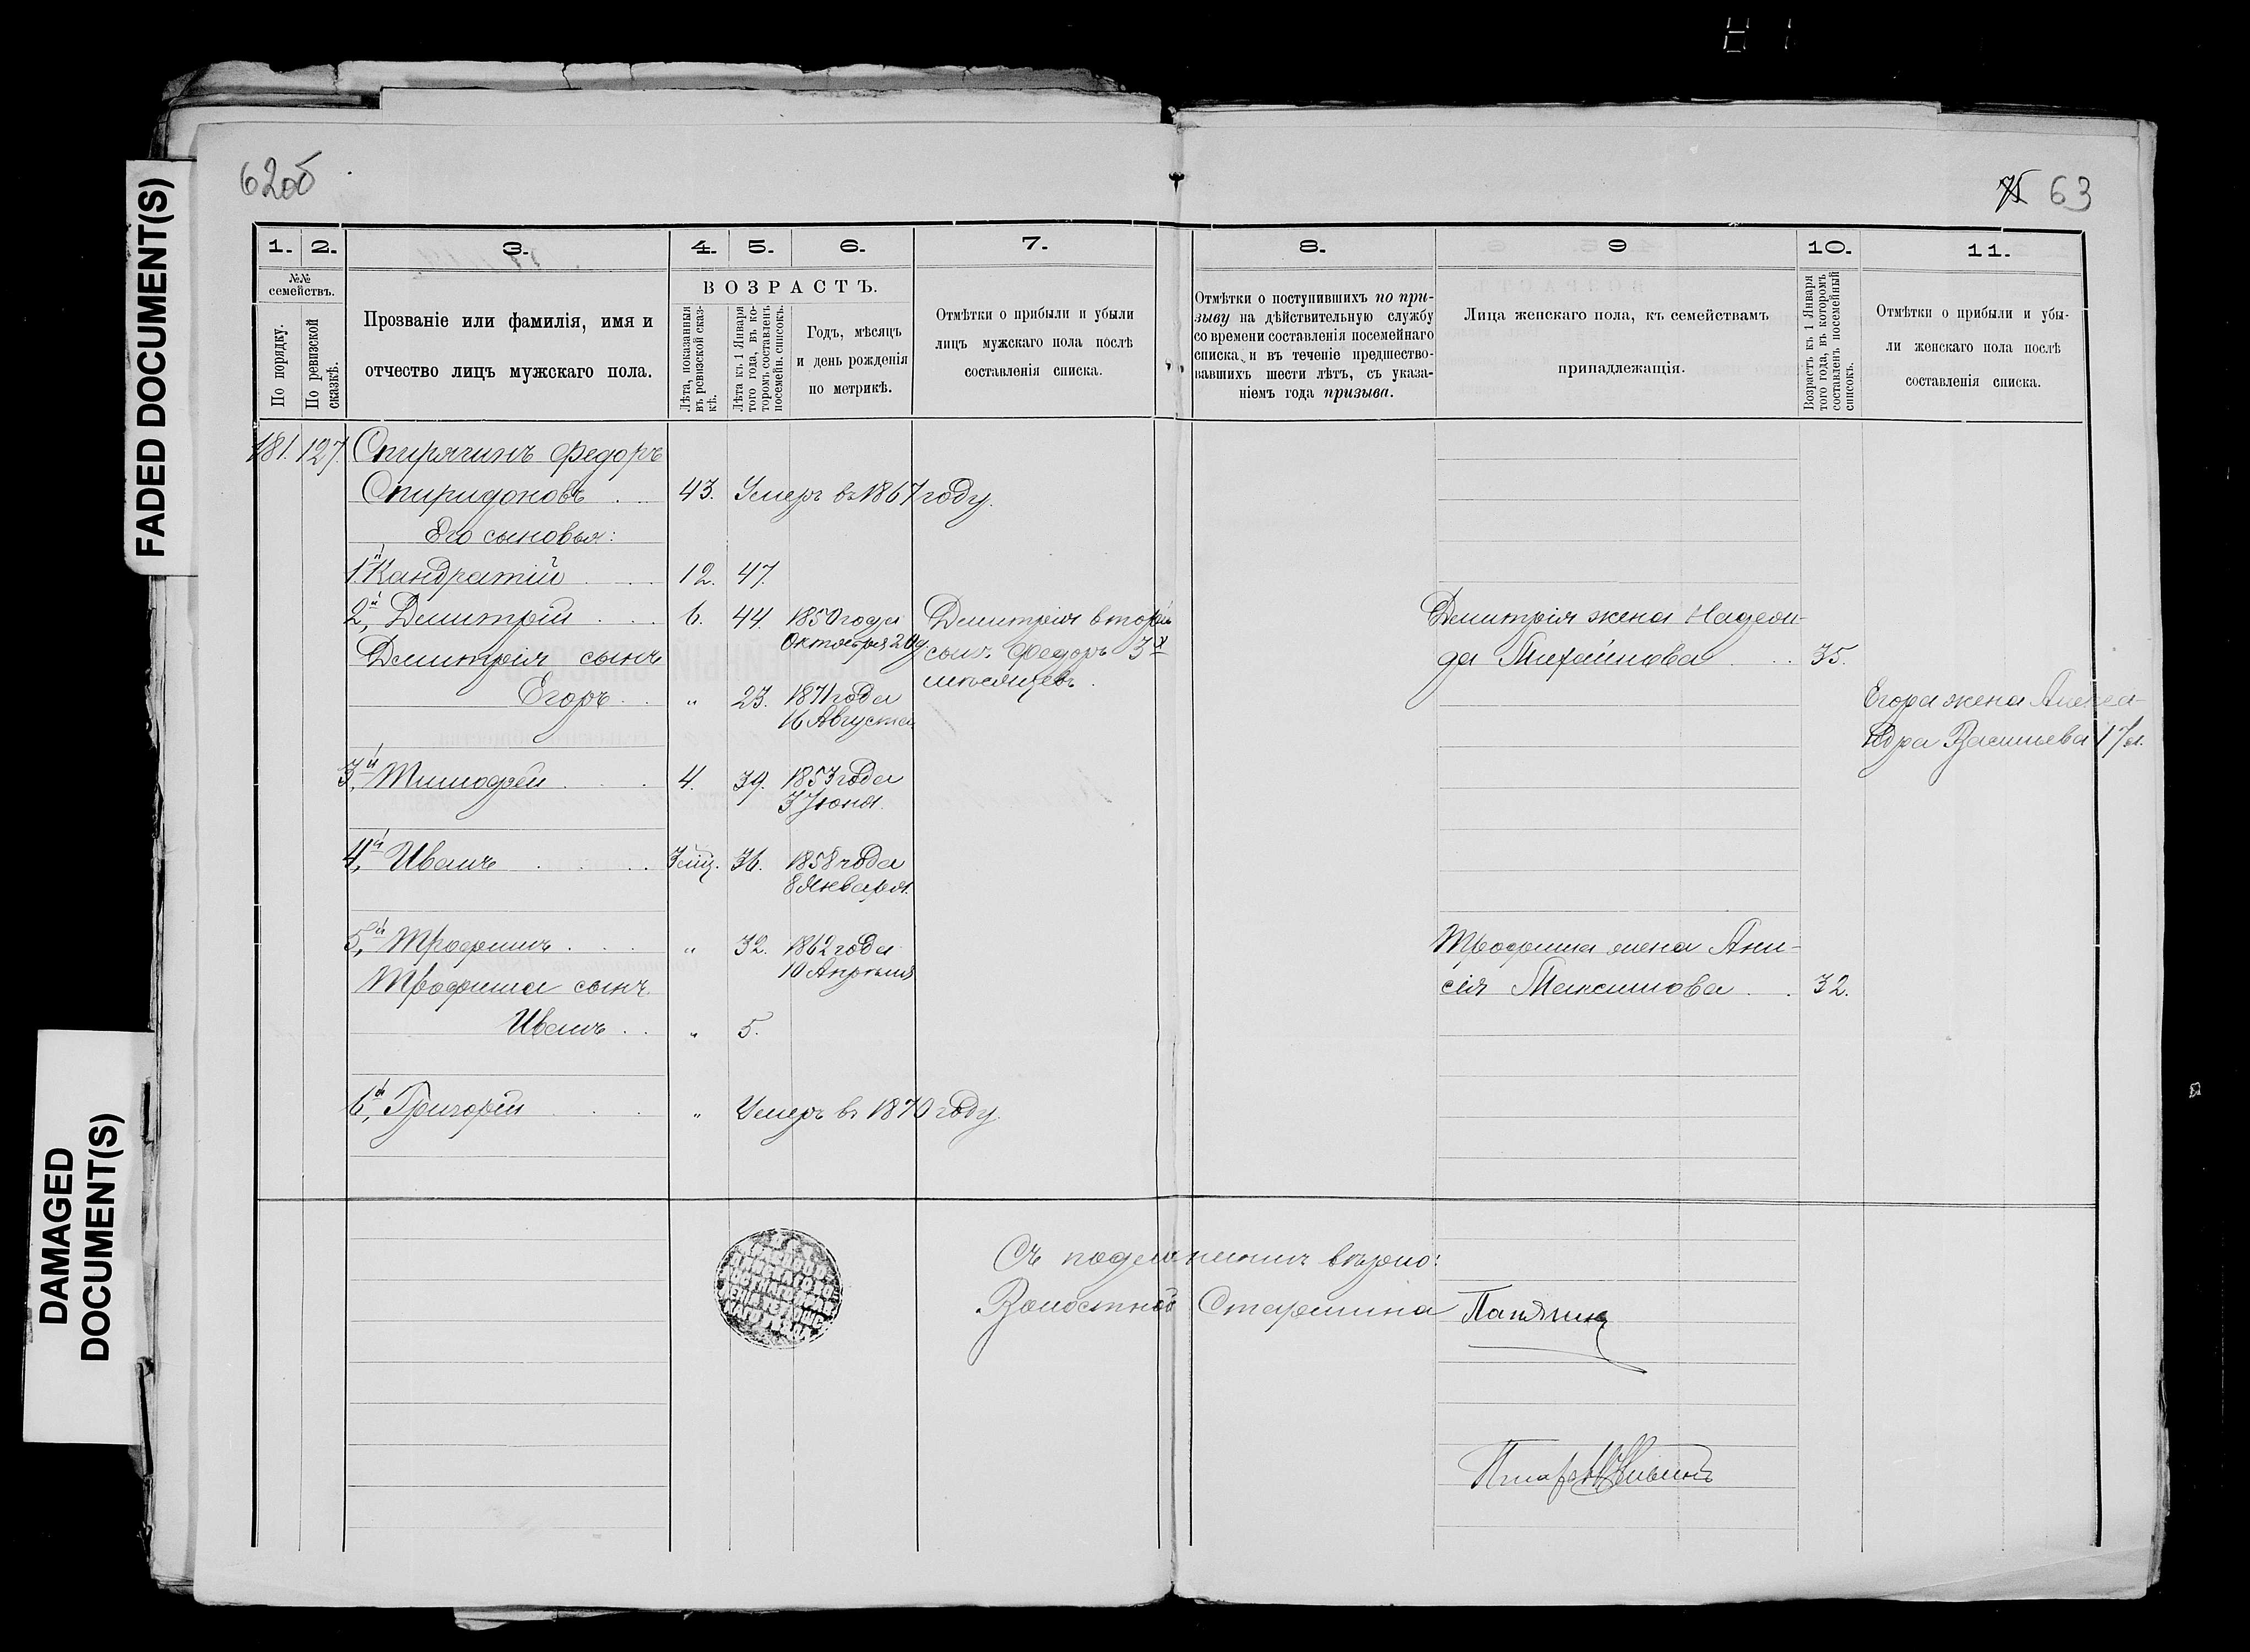 FADED DOCUMENT(S)
DAMAGED
DOCUMENT(S)
62об
75 63
1. 2. 3. 4. 5. 6. 7. 8. 9 10. 11.
№№
семействъ.
По порядку.
По ревизской
сказкѣ.
Прозваніе или фамилія, имя и
отчество лицъ мужскаго пола.
ВОЗРАСТЪ.
Лѣта, показанныя
въ ревизской сказ-
кѣ.
Лѣта къ 1 Января
того года, въ ко-
торомъ составленъ
посемейн. списокъ.
Годъ, мѣсяцъ
и день рожденія
по метрикѣ.
Отмѣтки о прибыли и убыли
лицъ мужскаго пола послѣ
составленія списка.
Отмѣтки о поступившихъ по при-
зыву на дѣйствительную службу
со времени составленія посемейнаго
списка и въ теченіе предшество-
вавшихъ шести лѣтъ, съ указа-
ніемъ года призыва.
Лица женскаго пола, къ семействамъ
принадлежащія.
Возрастъ къ 1 Января
того года, въ которомъ
составленъ посемейный
списокъ.
Отмѣтки о прибыли и убы-
ли женскаго пола послѣ
составленія списка.
181. 127. Спирячинъ Федоръ
Спиридоновъ 43. Умеръ въ 1867 году.
Его сыновья:
1й Кандратій 12. 47.
2й, Дмитрій 6. 44. 1850 года
Октября 20д.
Дмитрія сынъ
Егоръ „ 23. 1871 года
16 Августа
Дмитрія вторый
сынъ Федоръ 3х
мѣсяцевъ.
Дмитрія жена Надеж-
да Михайлова 35.
Егора жена Алекса-
ндра Васильева 17л.
3й, Тимофей 4. 39. 1853 года
3 Іюня.
4й, Иванъ 3 мѣс. 36. 1858 года
8 Января.
5й, Трофимъ „ 32. 1862 года
10 Апрѣля
Трофима жена Ани-
сія Максимова 32.
Трофима сынъ
Иванъ „ 5.
6й, Григорій „ Умеръ въ 1870 году.
Съ подлиннымъ вѣрно:
Волостной Старшина
Писарь